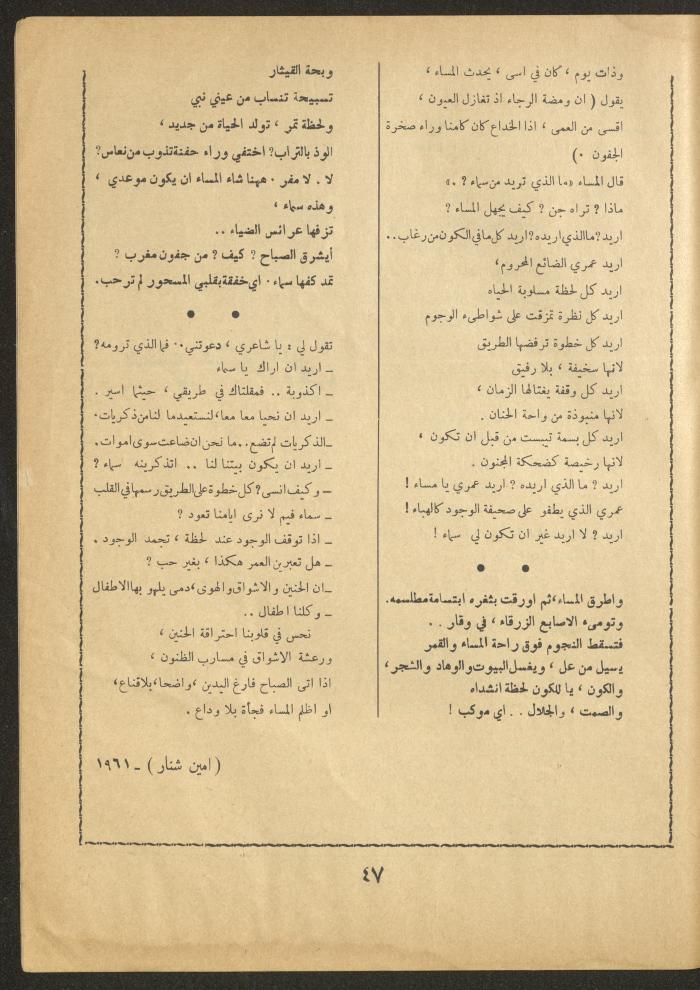 وذات يوم ، كان في اسى ، يحدث المساء ،
يقول ( ان ومضة الرجاء اذ تغازل العيون ،
اقسى من العمى ، اذا الخداع كان كامنا وراء صخرة
الجفون . )
قال المساء «ما الذي تريد من سماء ? .»
ماذا ? تراه جن ? كيف يجهل المساء ?
اريد ? ما الذي اريده ? اريد كل ما في الكون من رغاب . .
اريد عمري الضائع المحروم ،
اريد كل لحظة مسلوبة الحياه
اريد كل نظرة تمزقت على شواطىء الوجوم
اريد كل خطوة ترفضها الطريق
لانها سخيفة ، بلا رفيق
اريد كل وقفة يغتالها الزمان ،
لانها منبوذة من واحة الحنان .
اريد كل بسمة تيبست من قبل ان تكون ،
لانها رخيصة كضحكة المجنون .
اريد ? ما الذي اريده ? اريد عمري يا مساء !
عمري الذي يطفو على صحيفة الوجود كالهباء !
اريد ? لا اريد غير ان تكون لي سماء !
• •
واطرق المساء ، ثم اورقت بثغره ابتسامة مطلسمه .
وتومىء الاصابع الزرقاء ، في وقار . .
فتسقط النجوم فوق راحة المساء والقمر
يسيل من عل ، ويغسل البيوت والوهاد والشجر ،
والكون ، يا للكون لحظة انشداه
والصمت ، والجلال . . اي موكب !
وبحة القيثار
تسبيحة تنساب من عيني نبي
ولحظة تمر ، تولد الحياة من جديد ،
الوذ بالتراب ? اختفي وراء حفنة تذوب من نعاس ?
لا . لا مفر . ههنا شاء المساء ان يكون موعدي ،
وهذه سماء ،
تزفها عرائس الضياء . .
أيشرق الصباح ? كيف ? من جفون مغرب ?
تمد كفها سماء . اي خفقة بقلبي المسحور لم ترحب .
• •
تقول لي : يا شاعري ، دعوتني . . فما الذي ترومه ?
ـ اريد ان اراك يا سماء
ـ اكذوبة . . فمقلتاك في طريقي ، حيثما اسير .
ـ اريد ان نحيا معا معا ، لنستعيد ما لنا من ذكريات .
ـ الذكريات لم تضع . . ما نحن ان ضاعت سوى اموات .
ـ اريد ان يكون بيتنا لنا . . اتذكرينه سماء ?
ـ وكيف انسى ? كل خطوة على الطريق رسمها في القلب
ـ سماء فيم لا نرى ايامنا تعود ?
ـ اذا توقف الوجود عند لحظة ، تجمد الوجود .
ـ هل تعبرين العمر هكذا ، بغير حب ?
ـ ان الحنين والاشواق والهوى ، دمى يلهو بها الاطفال
ـ وكلنا اطفال . .
نحس في قلوبنا احتراقة الحنين ،
ورعشة الاشواق في مسارب الظنون ،
اذا اتى الصباح فارغ اليدين ، واضحا ، بلا قناع ،
او اظلم المساء فجأة بلا وداع .
( امين شنار ) ـ ١٩٦١
٤٧